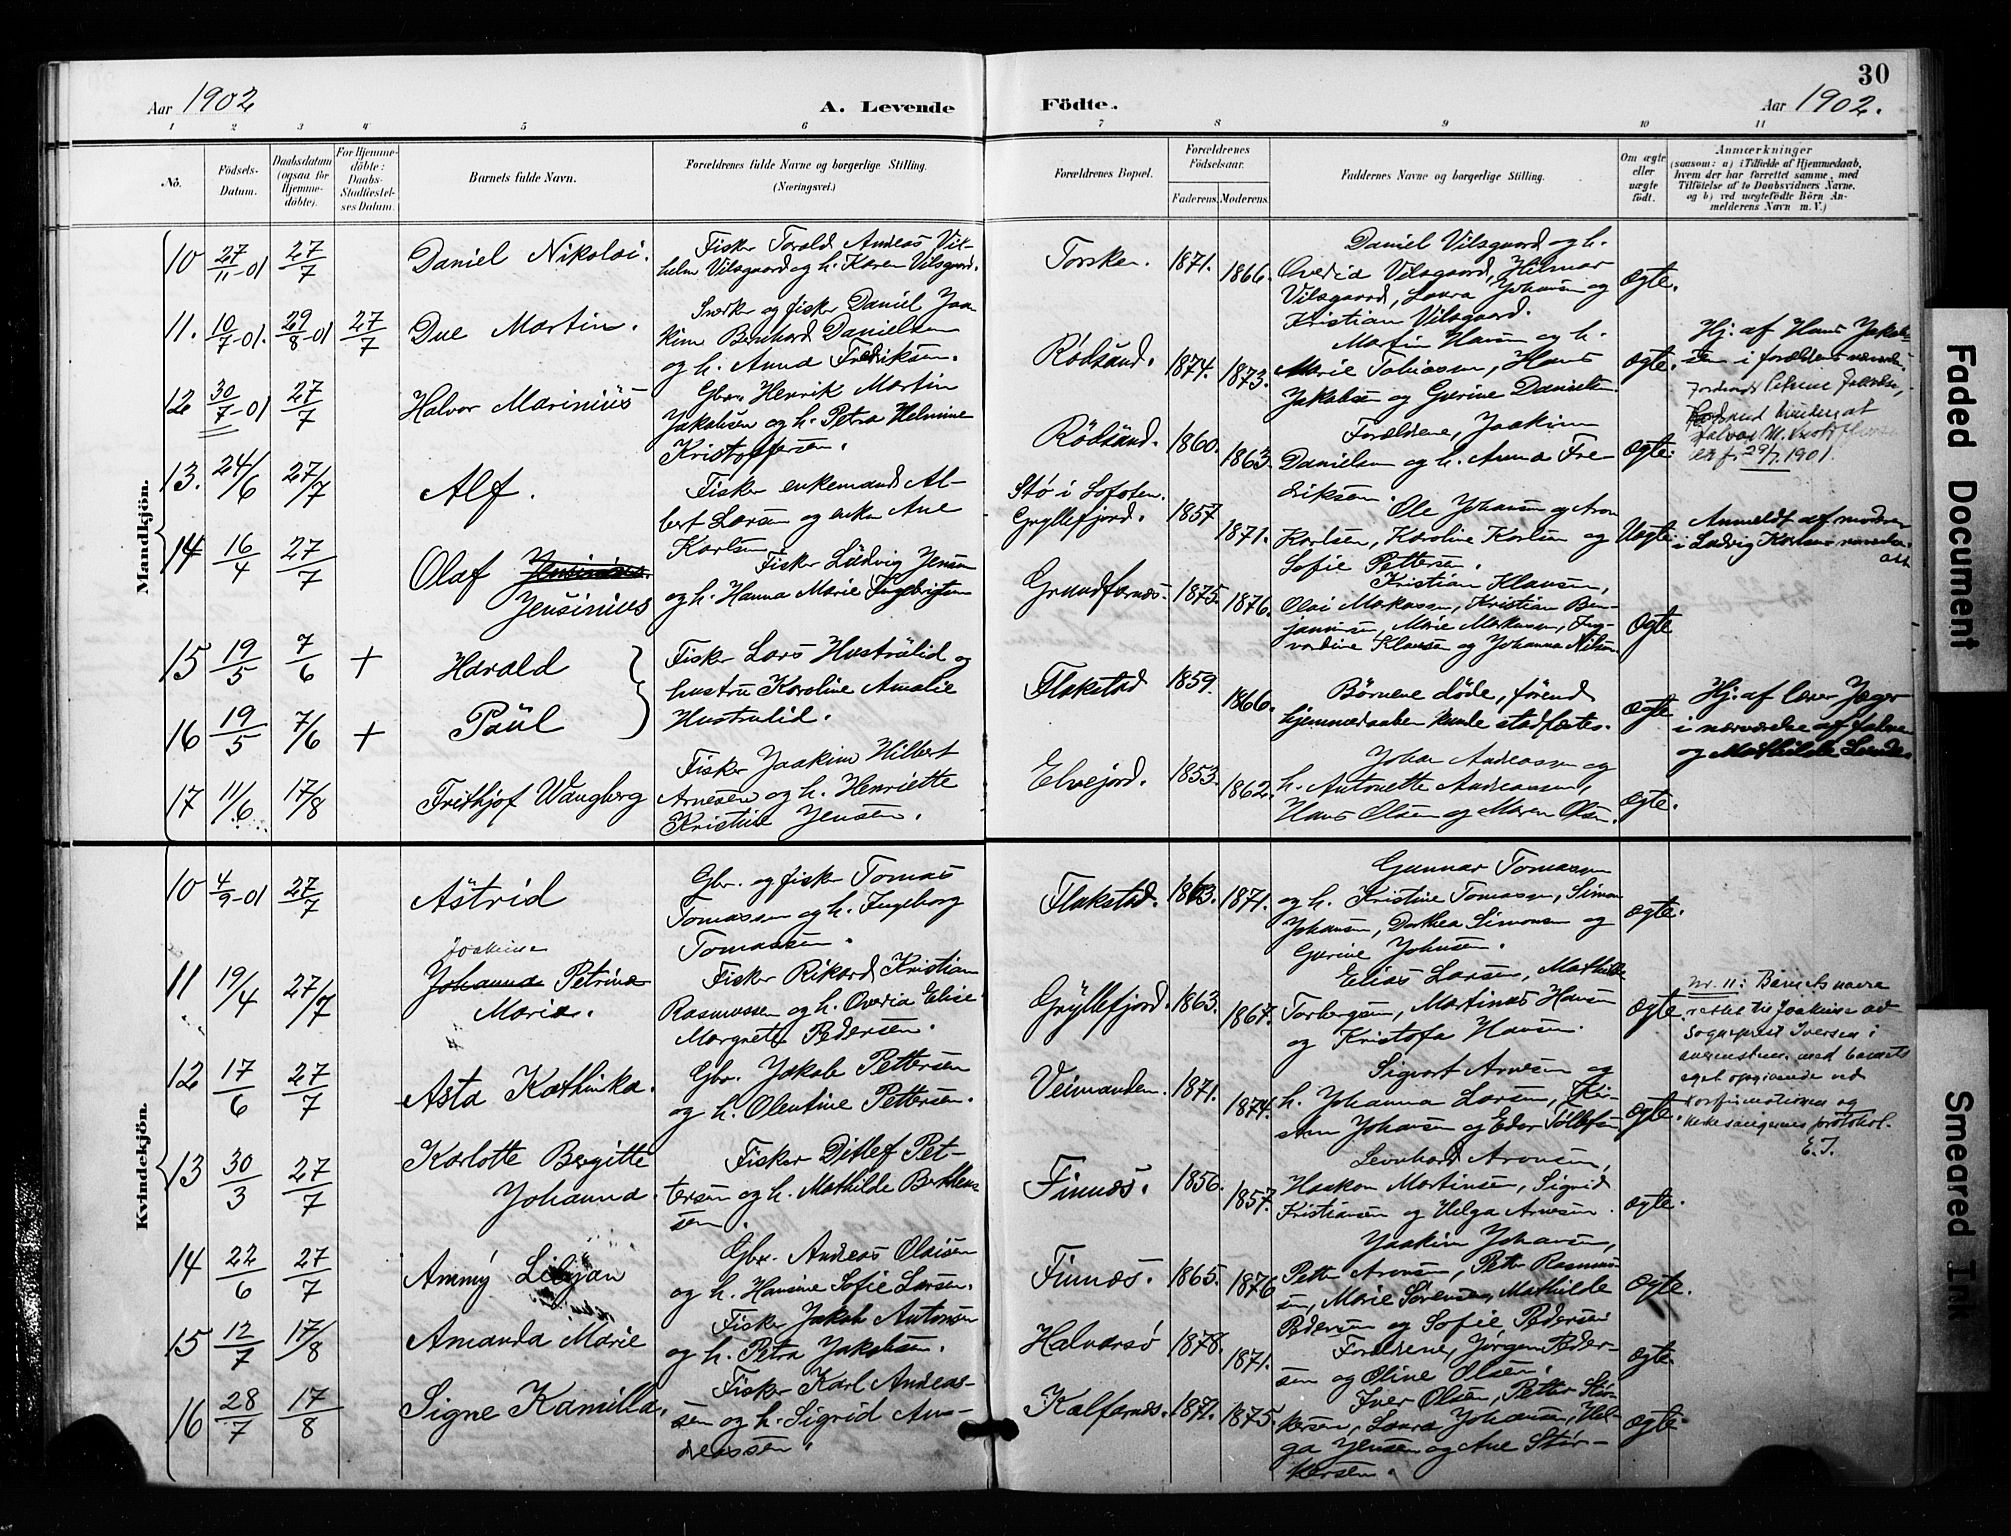 Aar 1902
A. Levende Födte.
Aar 1902.
30
1 2 3 4 5 6 7 8 9 10 11
No.
Födsels-Datum.
Daabsdatum (ogsaa for Hjemme-döbte).
For Hjemme-döbte: Daabs-Stadfæstel-ses Datum.
Barnets fulde Navn.
Forældrenes fulde Navne og borgerlige Stilling. (Næringsvei.)
Forældrenes Bopæl.
Forældrenes Födselsaar.
Faderens. Moderens.
Faddernes Navne og borgerlige Stilling.
Om ægte eller uægte födt.
Anmærkninger
(saasom: a) i Tilfælde af Hjemmedaab,
hvem der har forrettet samme, med
Tilföielse af to Daabsvidners Navne.
og b) ved uægtefödte Börn An-
melderens Navn m. V.)
Mandkjön.
10 27/11-01 27/7 Daniel Nikolai.
Fisker Torald Andreas Vil-
helm Vilsgaard og h. Karen Vilsgaard.
Torsken. 1871. 1866.
Daniel Vilsgaard og h.
Overdia Vilsgaard, Hilmar
Vilsgaard, Laura Johansen og
Kristian Vilsgaard.
ægte.
11. 10/7-01. 29/8-01 27/7 Due Martin.
Snekker og fisker Daniel Joa
kim Bernhard Danielsen
og h. Anna Fredriksen.
Rödsand. 1874. 1873.
Martin Hansen og h.
Marie Tobiassen, Hans
Jakobsen og Gurine Danielsen
ægte.
Hj. af Hans Jakob-
sen i forældrenes
12 30/7-01 27/7 Halvor Marinius
Gbr. Henrik Martin
Jakobsen og h. Petra Helmine
Kristoffersen.
Rödsand. 1860. 1863.
Forældrene, Joakim
Danielsen og h. Anna Fre-
driksen.
ægte.
29/7 1901.
13. 24/6 27/7 Alf.
Fisker enkemand Al-
bert Larsen og enken Ane
Karlsen
Stø i Lofoten.
Gryllefjord. 1857 1871.
Ole Johansen og Aron
Karlsen, Karoline Karlsen og
Sofie Pettersen.
Uægte
Anmeldt af moderen
i Ludvig Karlsens
14 16/4 27/7 Olaf Jensinius
Fisker Ludvig Jensen
og h. Hanna Marie Ingebrigtsen
Grundfarnes. 1875. 1876.
Kristian Klausen,
Olai Makussen, Kristian Ben-
jaminsen, Marie Markussen, Ing-
vardine Klausen og Johanna Nilsen
ægte
15 19/5 7/6 + Harald
16 19/5 7/6 + Paul
Fisker Lars Hustrulid og
hustru Karoline Amalie
Hustrulid.
Flakstad 1859. 1866.
Børnene døde, førend
hjemmedaaben kunde stadfæstes.
ægte
Hj. af Iver Jæger
i nærværelse af
og Mathilde
17 11/6 17/8 Frithjof Wangberg
Fisker Joakim Hilbert
Arnesen og h. Henriette
Kristine Jensen.
Elvejord. 1853. 1862.
Johan Andreassen og
h. Antonette Andreassen,
Hans Olsen og Maren Olsen.
ægte.
Kvindekjön.
10 4/9-01 27/7 Astrid
Gbr. og fisker Tomas
Tomassen og h. Ingeborg
Tomassen.
Flakstad. 1863. 1871.
Gunnar Tomassen
og h. Kristine Tomassen, Simon
Johansen, Dorthea Simonsen og
Gurine Johnsen.
ægte.
11 19/4 27/7 Joakime
Johanna Petrine
Marie.
Fisker Rikard Kristian
Rasmussen og h. Overdia Elise
Margrete Pedersen.
Gryllefjord. 1863. 1867.
Elias Larsen, Mathilde
Torbergsen, Martinus Hansen
og Kristofa Hansen.
ægte.
Nr. 11: Barnets navn
rettet til Joakime av
Sogneprest Iversen i
overenstem. med barnets
eget opgivende ved
konfirmationen og
kirkesangerens protokol.
E.I.
12 17/6 27/7 Asta Kathinka.
Gbr. Jakob Pettersen
og h. Olentine Pettersen.
Veimanden. 1871. 1874.
Sigvart Arnesen og
h. Johanna Larsen,
Johansen og Edar Tollefsen
ægte.
13 30/3 27/7 Karlotte Bergitte
Johanna.
Fisker Ditlef Pet-
tersen og h. Mathilde Berthens
sen.
Finnes. 1856. 1857.
Leonhard Aronsen,
Haakon Martinsen, Sigrid
Kristiansen og Helga Arnesen.
ægte.
14 22/6 27/7 Ammy Liljan
Gbr. Andreas Olaisen
og h. Hansine Sofie Larsen.
Finnes. 1865. 1876
Joakim Johansen,
Petter Aronsen, Petter Rasmus-
sen, Marie Sørensen, Mathilde
Pedersen og Sofie Pedersen
ægte.
15 12/7 17/8 Amanda Marie
Fisker Jakob Antonsen
og h. Petra Jakobsen.
Halvarsø 1878. 1871.
Forældrene, Jørgen Peder-
sen og Oline Olsen.
ægte.
16 28/7 17/8 Signe Kamilla.
Fisker Karl Andreas-
sen og h. Sigrid An-
dreassen.
Kalfarnes. 1872. 1875.
Iver Olsen, Petter Stør-
kersen, Laura Johansen, Hel-
ga Jensen og Ane Stør-
kersen.
ægte.
Faded Document
Smeared Ink